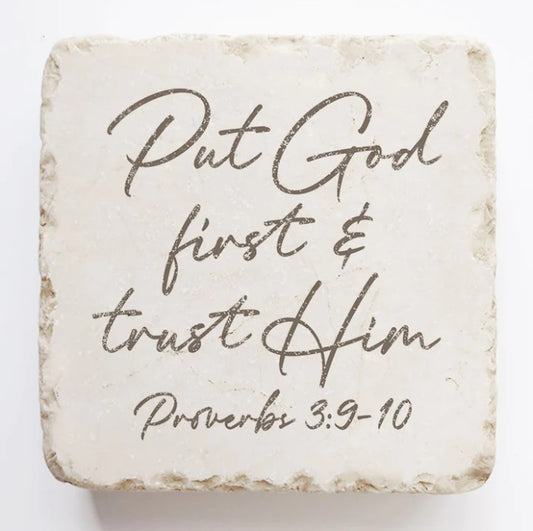 Put God
first &
trust Him
Proverbs 3:9-10